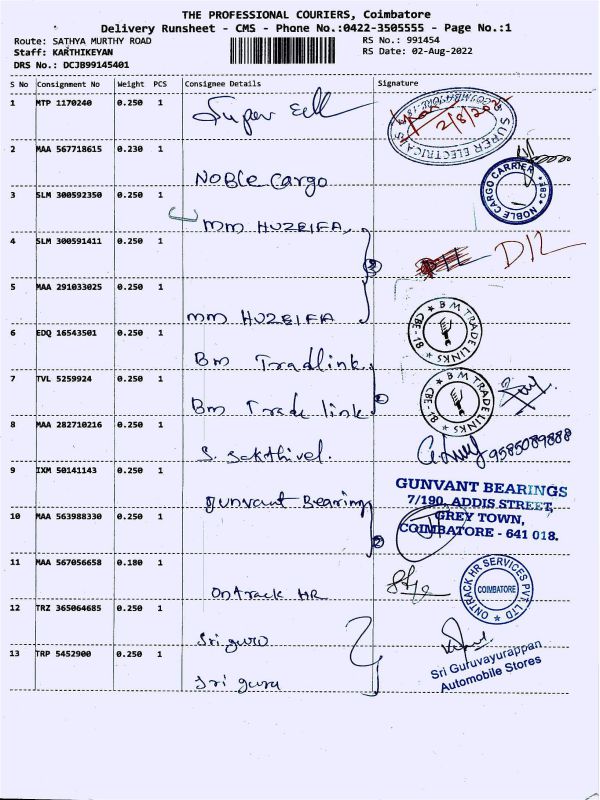 THE PROFESSIONAL COURIERS, Coimbatore
Delivery Runsheet - CMS - Phone No.:0422-3505555 - Page No.:1
Route: SATHYA MURTHY ROAD
RS No.: 991454
Staff: KARTHIKEYAN
RS Date: 02-Aug-2022
DRS No.: DCJB99145401
S No Consignment No Weight PCS Consignee Details Signature
1 MTP 1170240 0.250 1 Super
SUPER ELECTRICALS
COIMBATORE-18
2/8/202
2 MAA 567718615 0.230 1 NOBLe Cargo
NOBLE CARGO CARRIER
CBE
3 SLM 300592350 0.250 1 mm HUZEIFA,
4 SLM 300591411 0.250 1
5 MAA 291033025 0.250 1 mm HUZEIFA
6 EDQ 16543501 0.250 1 Bm Tradlink
B M TRADE LINKS
CBE-18
7 TVL 5259924 0.250 1 Bm Trade link
B M TRADE LINKS
CBE-18
8 MAA 282710216 0.250 1 S. Sakthivel.
9585089888
9 IXM 50141143 0.250 1 gunvant Bearing
GUNVANT BEARINGS
7/190, ADDIS STREET,
GREY TOWN,
COIMBATORE - 641 018.
10 MAA 563988330 0.250 1
2
11 MAA 567056658 0.180 1 Ontrack HR
ONTRACK HR SERVICES PVT LTD
COIMBATORE
12 TRZ 365064685 0.250 1 Sri guru
13 TRP 5452900 0.250 1 Sri guru
Sri Guruvayurappan
Automobile Stores